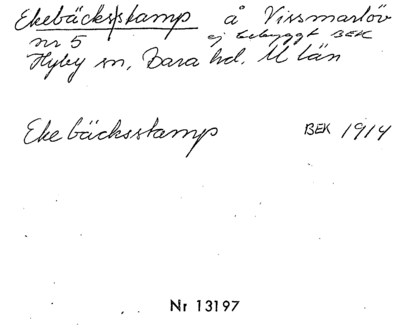 Ekebäcksstamp å Vissmarlöv
nr 5 ej bebyggt BEK
Hyby sn, Bara hd. M län
Ekebäcksstamp BEK 1914
Nr 13197